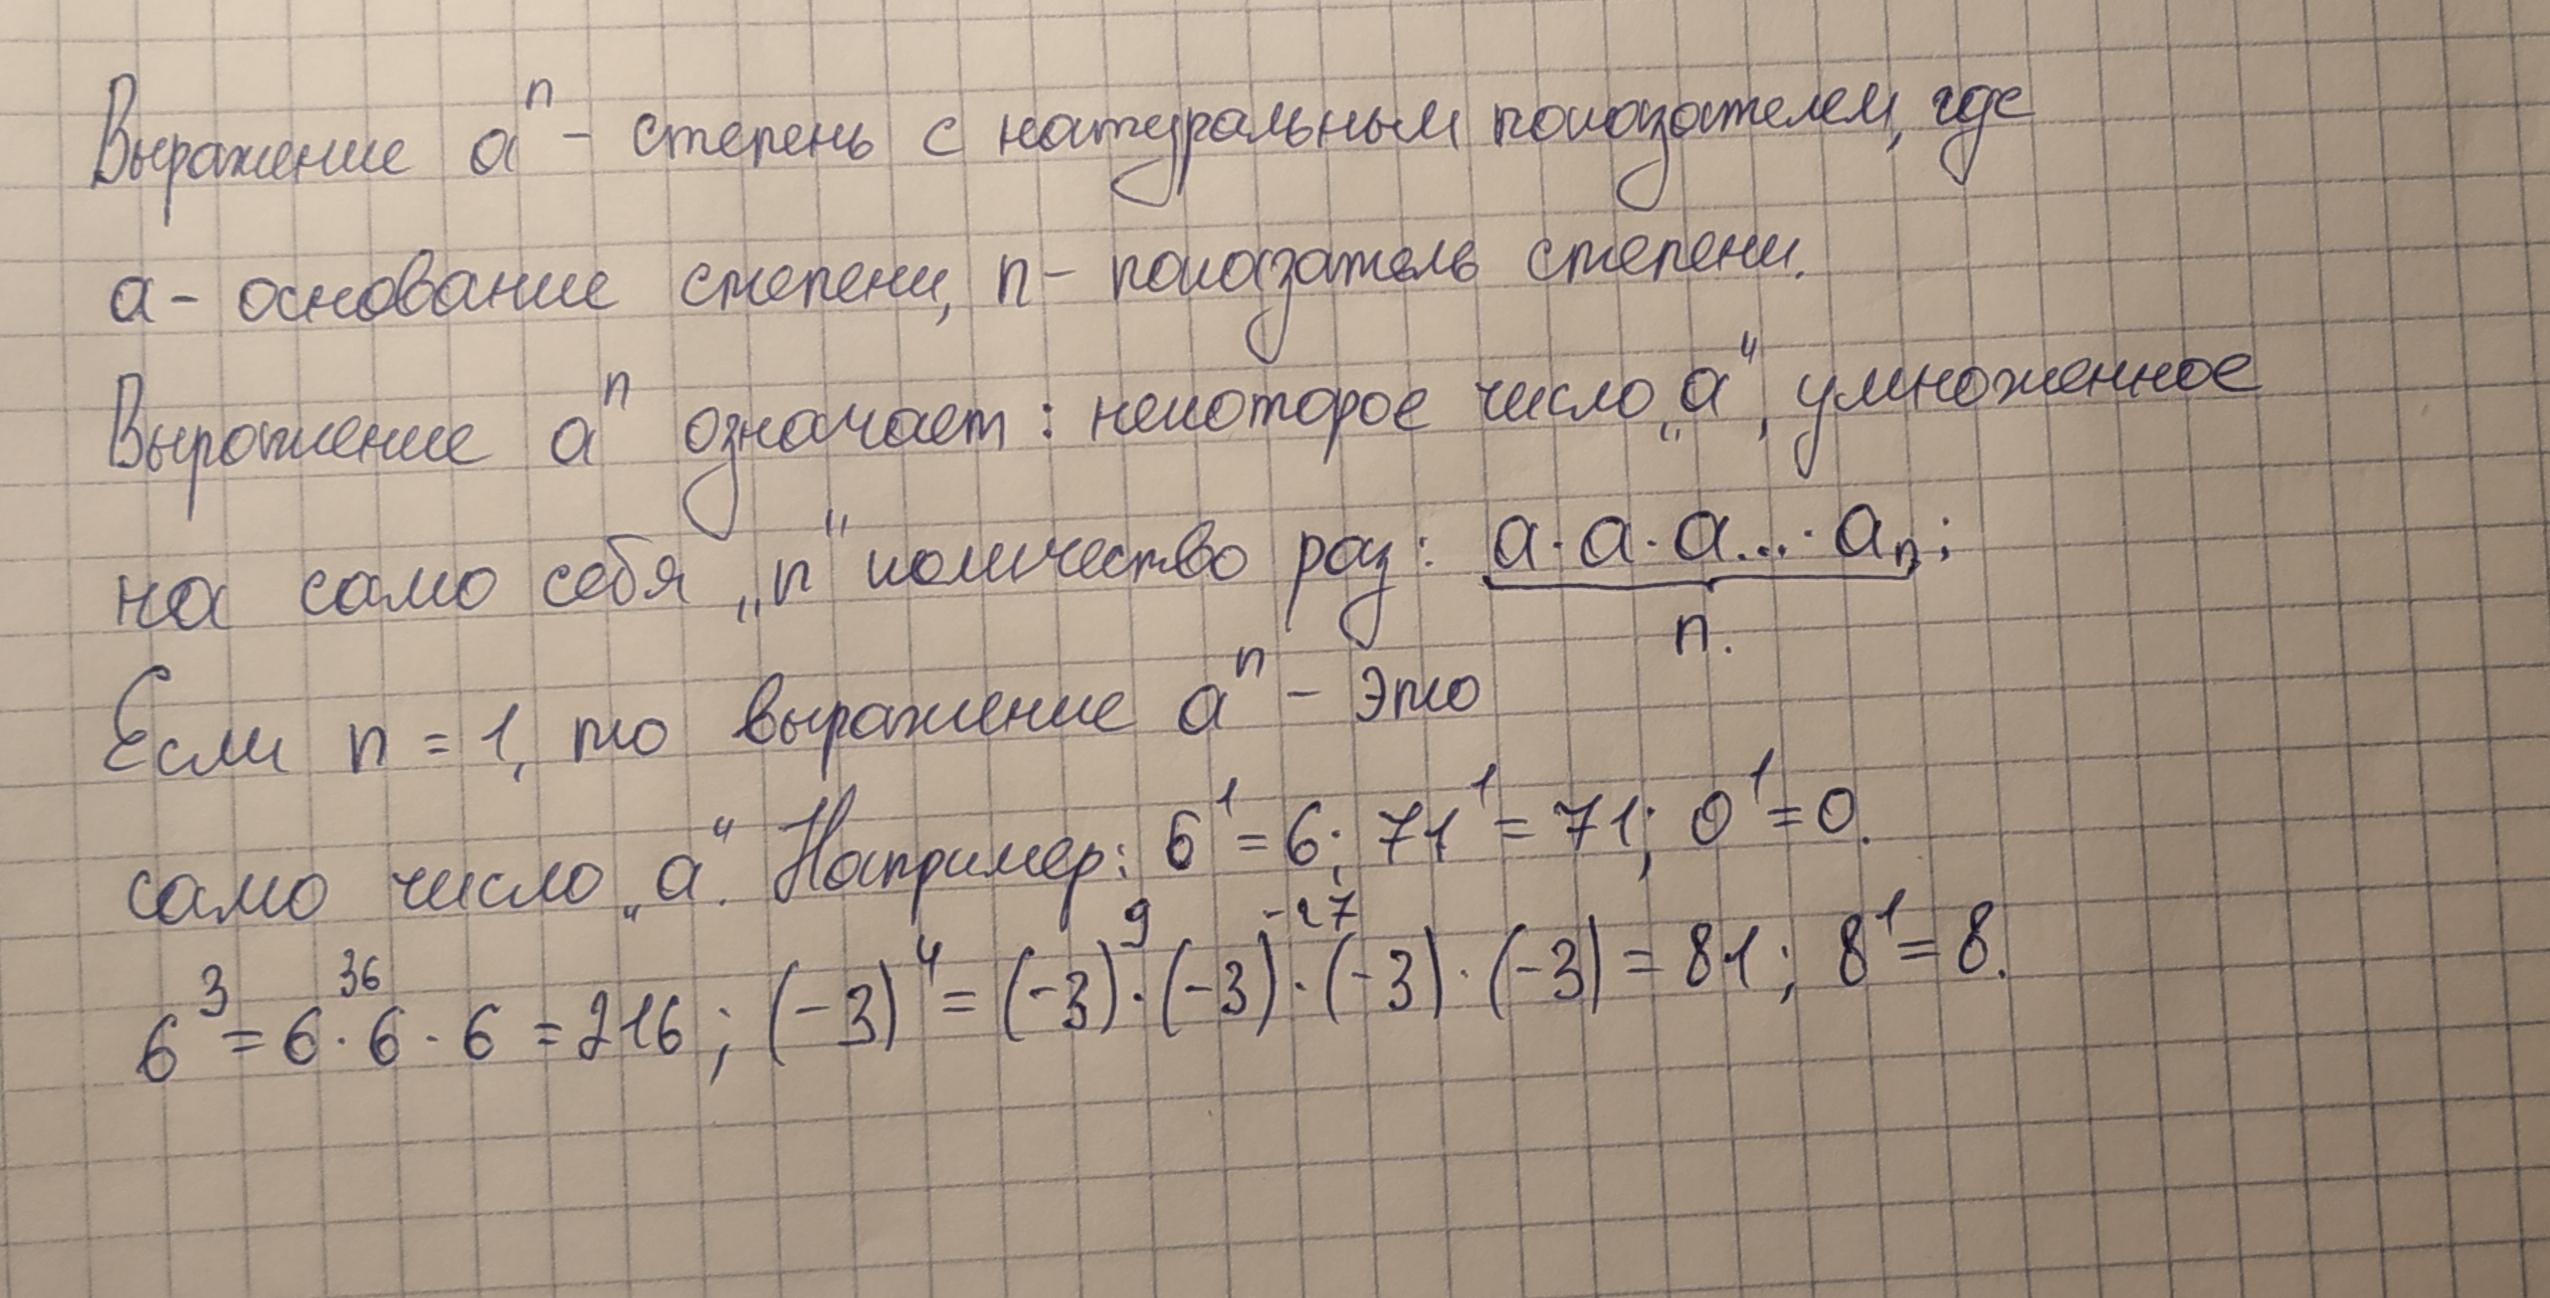 Выражение aⁿ - степень с натуральным показателем, где
a - основание степени, n - показатель степени.
Выражение aⁿ означает: некоторое число „a“, умноженное
на само себя „n“ количество раз: a · a · a ... · aₙ;
n.
Если n = 1, то выражение aⁿ - это
само число „a“. Например: 6¹ = 6; 71¹ = 71; 0¹ = 0.
36 9 -27
6³ = 6 · 6 · 6 = 216; (-3)⁴ = (-3) · (-3) · (-3) · (-3) = 81; 8¹ = 8.